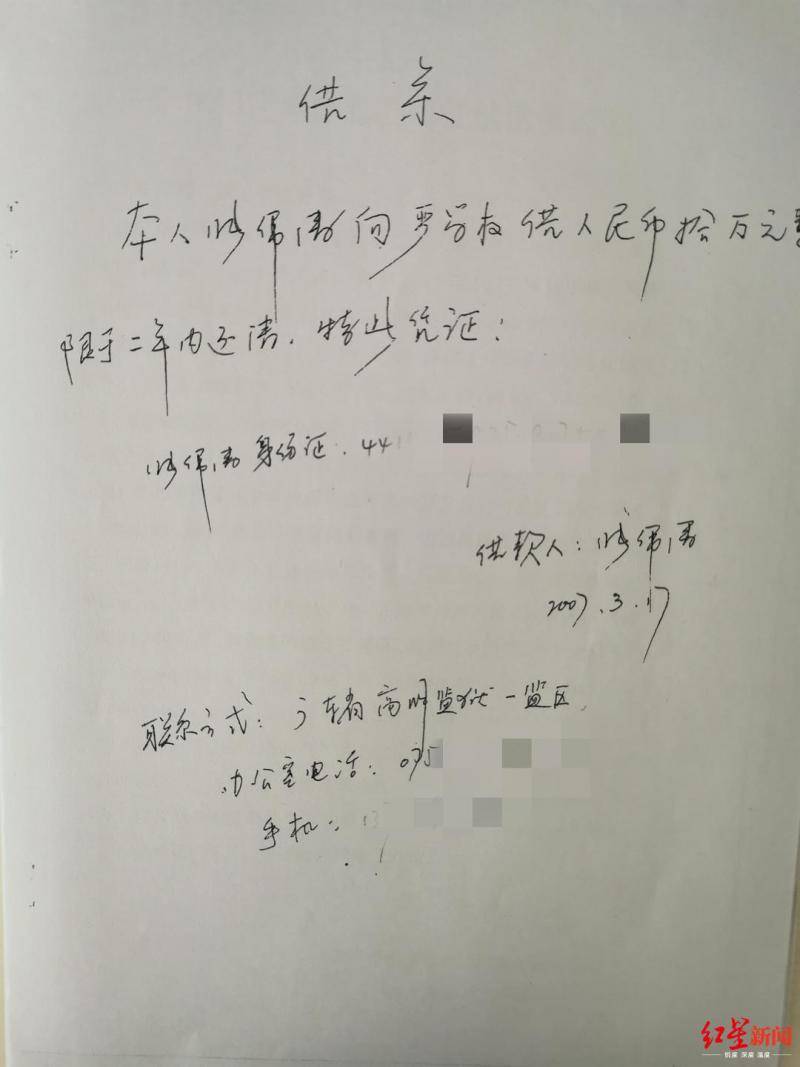 借条
本人 伟涛向严学权借人民币拾万元整
限于二年内还清.特此凭证:
伟涛身份证:44
借款人: 伟涛
2007.3.17
联系方式:广东省高明监狱一监区
办公室电话:075
手机:
红星新闻
锐度 深度 温度